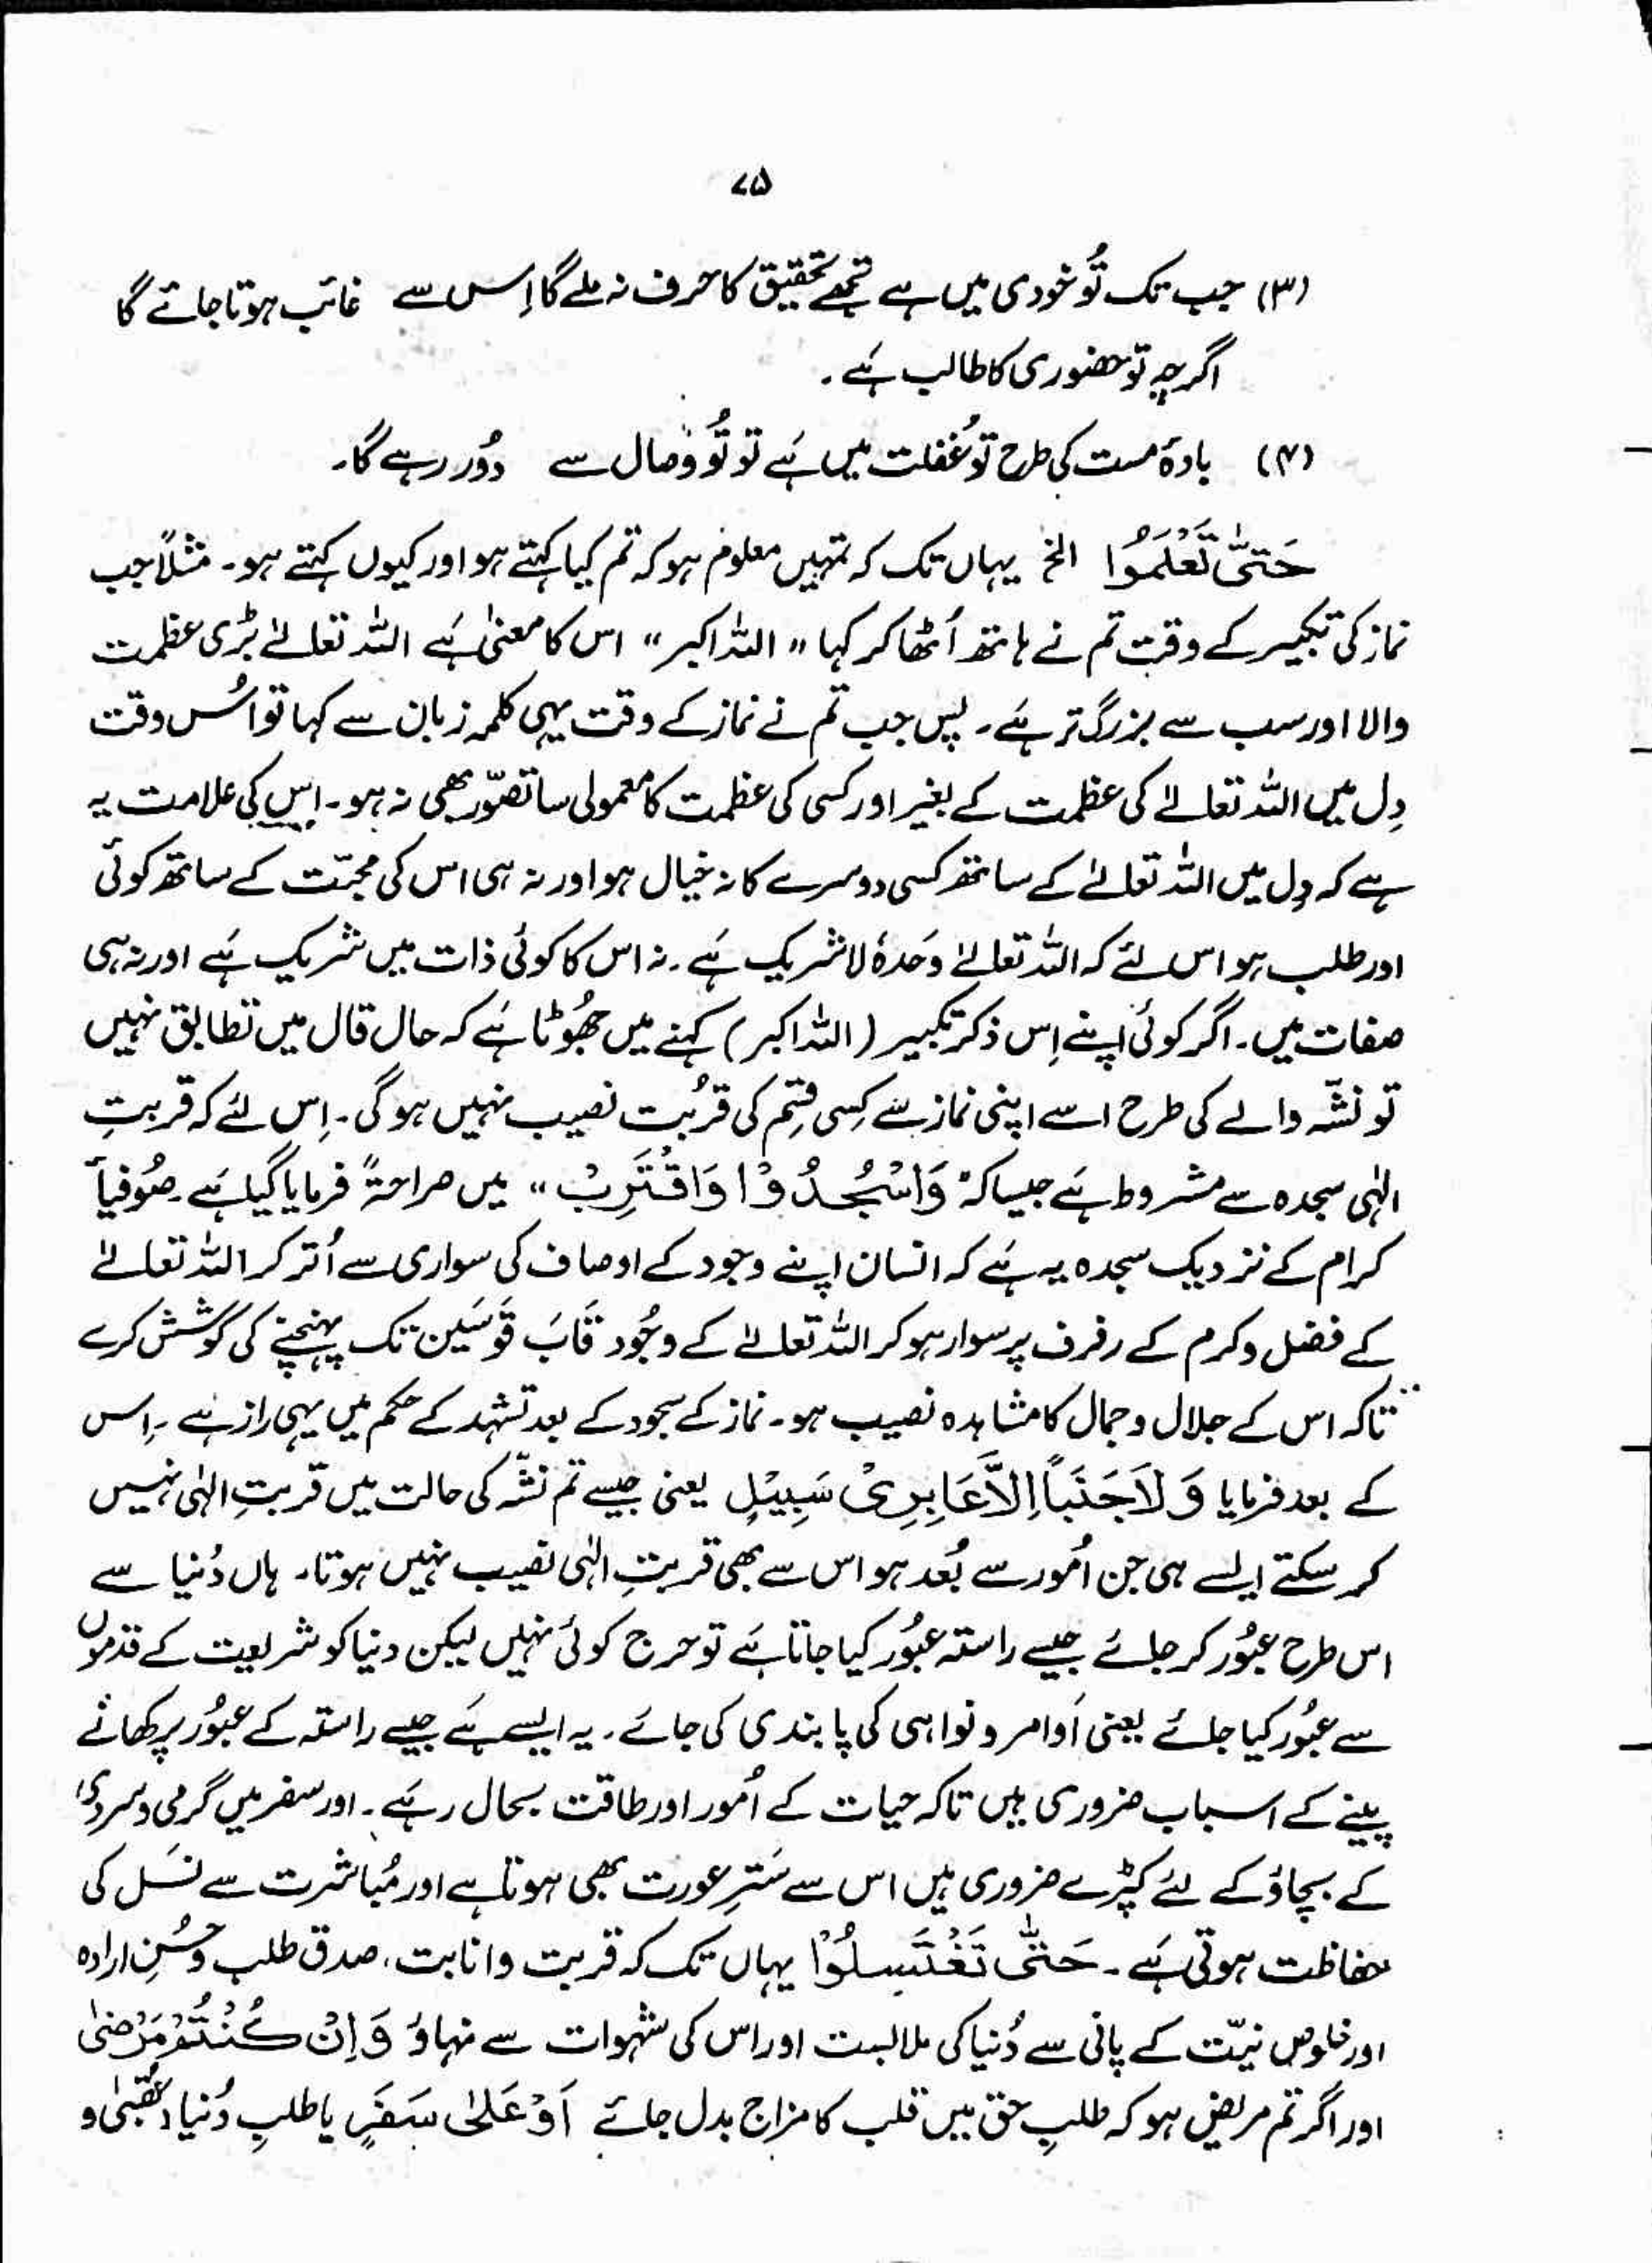 ۷۵
(۳) جب تک تُو خودی میں ہے تجھے تحقیق کا حرف نہ ملے گا اِس سے غائب ہوتا جائے گا
اگرچہ تو حضوری کا طالب ہَے ۔
(۴) بادۂ مست کی طرح تو غفلت میں ہَے تو تُو وصال سے دُور رہے گا۔
حَتّٰی تَعْلَمُوْا الخ یہاں تک کہ تمہیں معلوم ہو کہ تم کیا کہتے ہو اور کیوں کہتے ہو۔ مثلاً جب
نماز کی تکبیر کے وقت تم نے ہاتھ اُٹھا کر کہا " اللہ اکبر " اس کا معنیٰ ہَے اللہ تعالےٰ بڑی عظمت
والا اور سب سے بزرگ تر ہَے ۔ پس جب تم نے نماز کے وقت یہی کلمہ زبان سے کہا تو اُس وقت
دِل میں اللہ تعالےٰ کی عظمت کے بغیر اور کسی کی عظمت کا معمولی سا تصوّر بھی نہ ہو۔ اِس کی علامت یہ
ہے کہ دِل میں اللہ تعالےٰ کے ساتھ کسی دوسرے کا نہ خیال ہو اور نہ ہی اس کی محبّت کے ساتھ کوئی
اور طلب ہو اس لئے کہ اللہ تعالےٰ وَحدہٗ لا شریک ہَے ۔ نہ اس کا کوئی ذات میں شریک ہَے اور نہ ہی
صفات میں ۔ اگر کوئی اپنے اِس ذکر تکبیر ( اللہ اکبر ) کہنے میں جھُوٹا ہَے کہ حال قال میں تطابق نہیں
تو نشّہ والے کی طرح اسے اپنی نماز سے کِسی قِسم کی قُربت نصیب نہیں ہوگی ۔ اِس لئے کہ قربتِ
الٰہی سجدہ سے مشروط ہَے جیسا کہ " وَاسْجُدُوْا وَاقْتَرِبْ " میں صراحتہً فرمایا گیا ہَے ۔ صُوفیاً
کرام کے نزدیک سجدہ یہ ہَے کہ انسان اپنے وجود کے اوصاف کی سواری سے اُتر کر اللہ تعالےٰ
کے فضل و کرم کے رفرف پر سوار ہو کر اللہ تعالےٰ کے وجُود قَابَ قَوسَین تک پہنچنے کی کوشش کرے
تاکہ اس کے جلال و جمال کا مشاہدہ نصیب ہو۔ نماز کے سجود کے بعد تشہد کے حکم میں یہی راز ہے ۔ اِس
کے بعد فرمایا وَ لَا جُنُبًا اِلَّا عَابِرِیْ سَبِیْلٍ یعنی جیسے تم نشّہ کی حالت میں قربتِ الٰہی نہیں
کر سکتے ایسے ہی جن اُمور سے بُعد ہو اس سے بھی قربتِ الٰہی نصیب نہیں ہوتا۔ ہاں دُنیا سے
اس طرح عبُور کر جائے جیسے راستہ عبُور کیا جاتا ہَے تو حرج کوئی نہیں لیکن دنیا کو شریعت کے قدموں
سے عبُور کیا جائے یعنی اَوامر و نواہی کی پابندی کی جائے ۔ یہ ایسے ہَے جیسے راستہ کے عبُور پر کھانے
پینے کے اسباب ضروری ہیں تاکہ حیات کے اُمور اور طاقت بحال رہَے ۔ اور سفر میں گرمی و سردی
کے بچاؤ کے لئے کپڑے ضروری ہیں اس سے سَترِ عورت بھی ہوتا ہے اور مُباشرت سے نسَل کی
حفاظت ہوتی ہَے ۔ حَتّٰی تَغْتَسِلُوْا یہاں تک کہ قربت و انابت، صدق طلب و حُسنِ ارادہ
اور خلوص نیّت کے پانی سے دُنیا کی ملابست اور اس کی شہوات سے نہاؤ وَ اِنْ کُنْتُمْ مَرْضٰی
اور اگر تم مریض ہو کہ طلبِ حق میں قلب کا مزاج بدل جائے اَوْ عَلٰی سَفَرٍ یا طلبِ دُنیا و عقبیٰ و